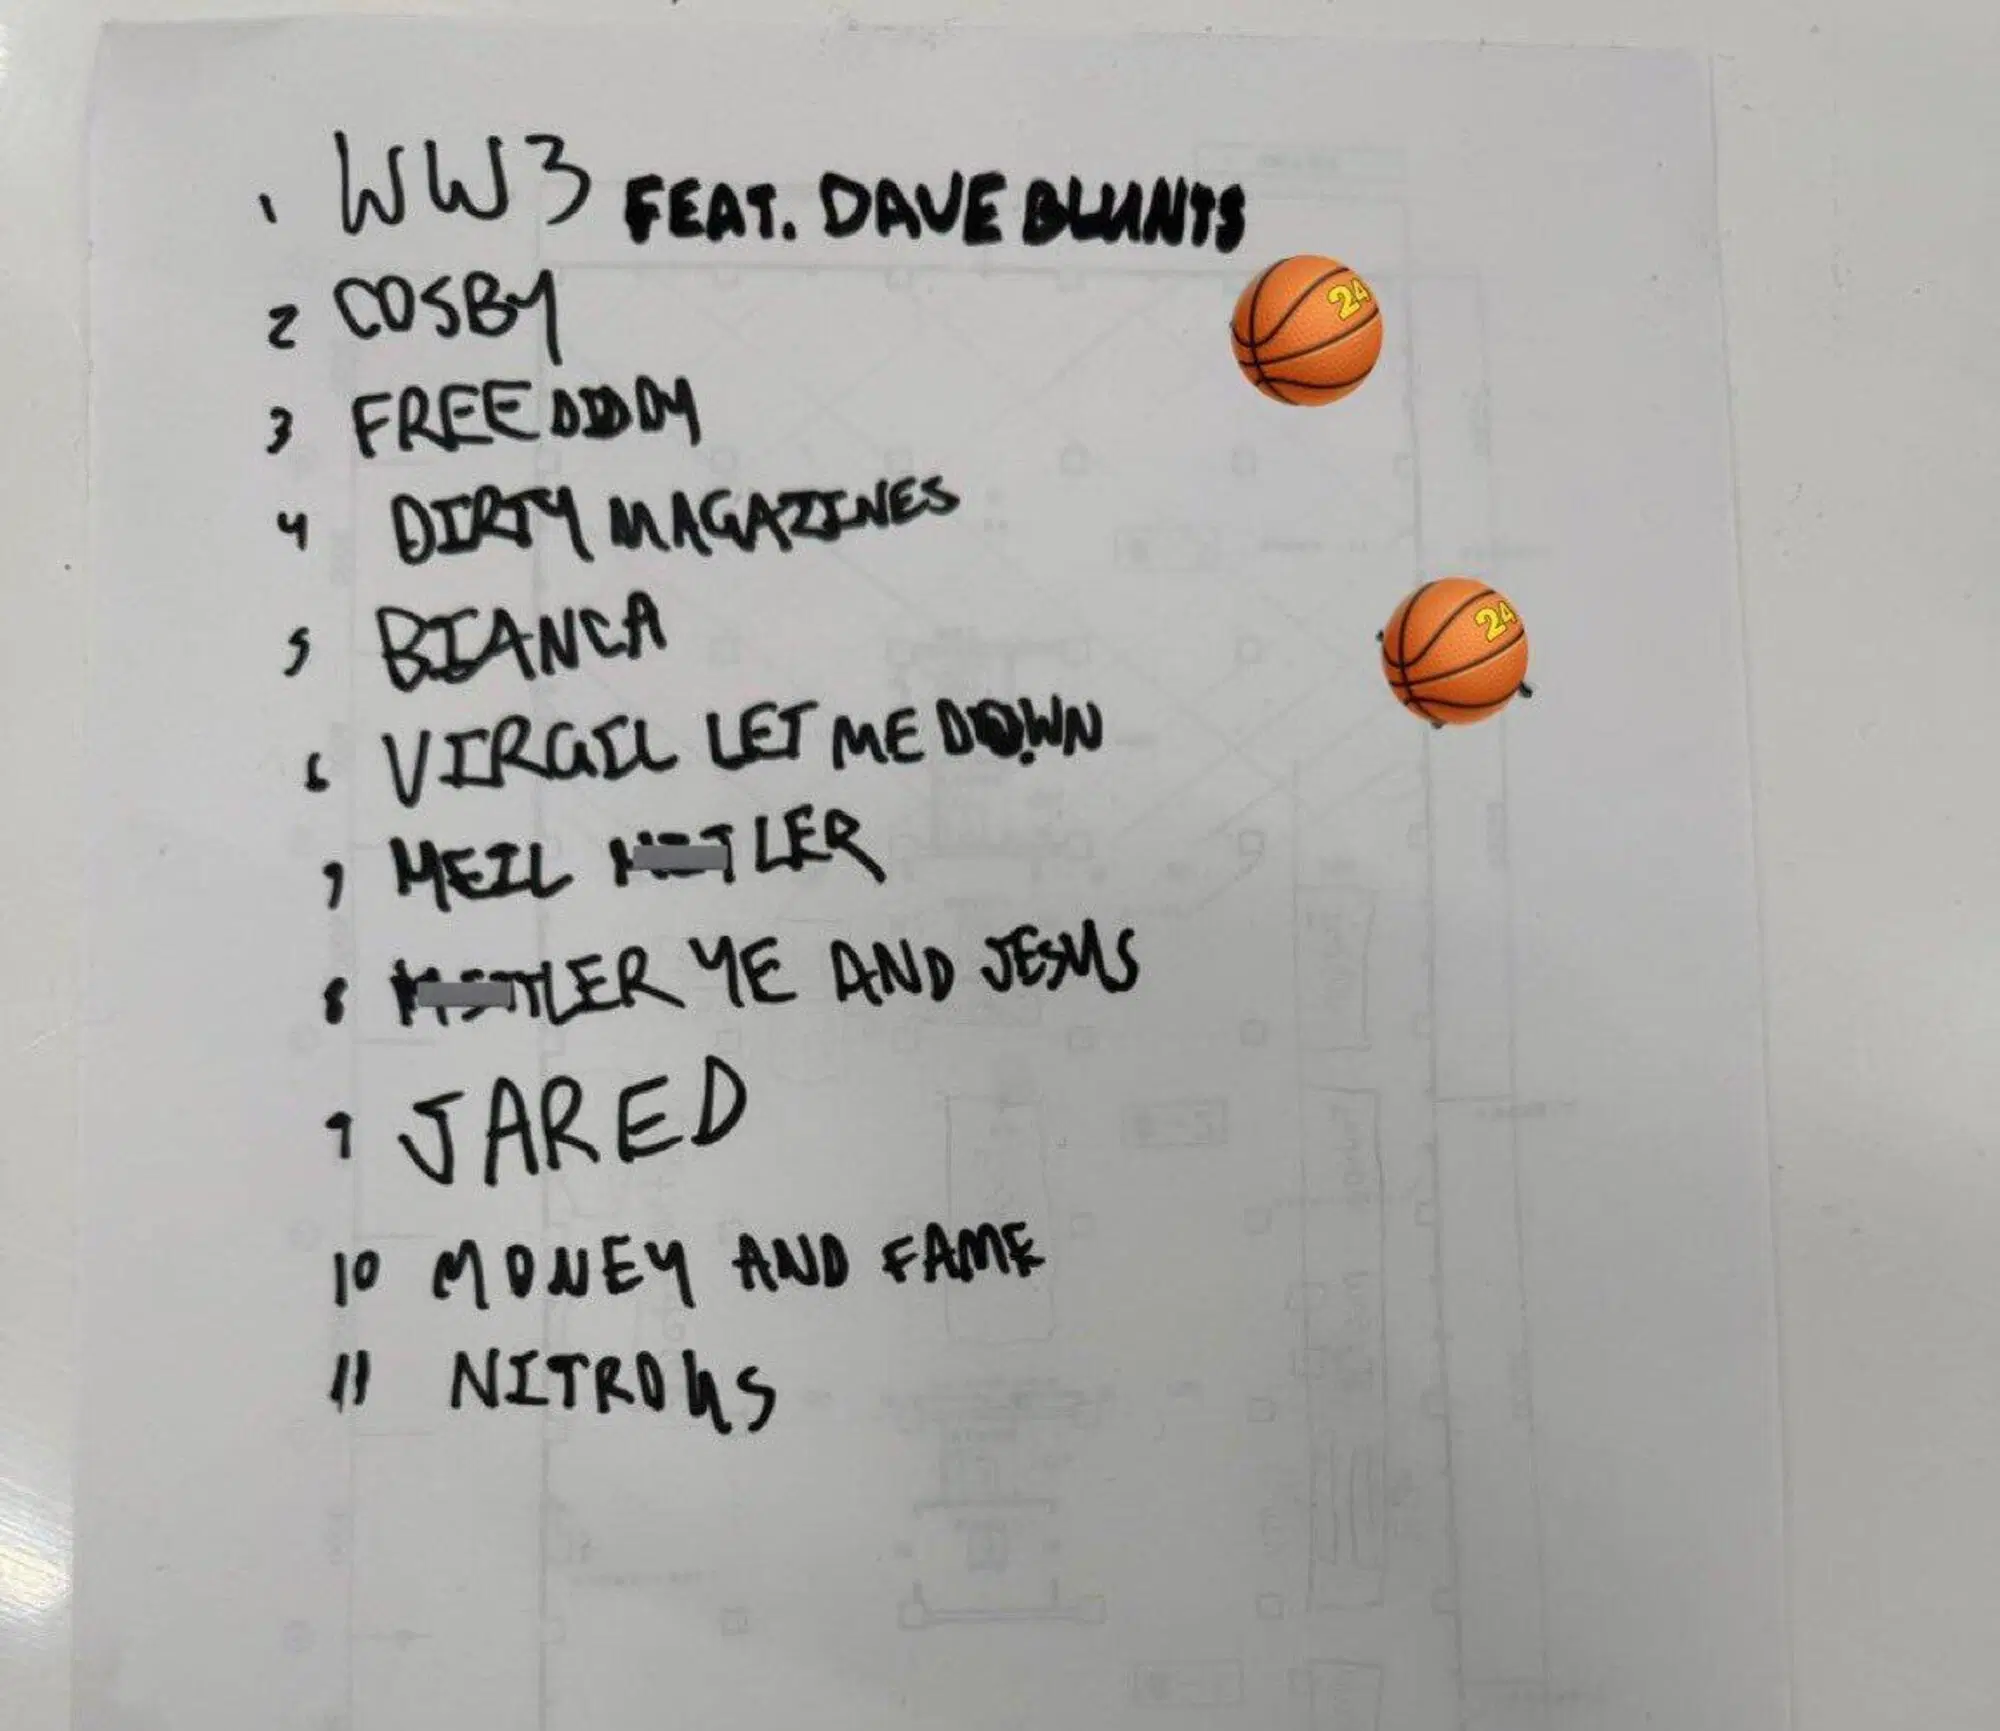 1 WW3 FEAT. DAVE BLUNTS
2 COSBY
24
3 FREE DIDDY
4 DIRTY MAGAZINES
5 BIANCA
24
6 VIRGIL LET ME DOWN
7 HEIL HITLER
8 HITLER YE AND JESUS
9 JARED
10 MONEY AND FAME
11 NITROUS